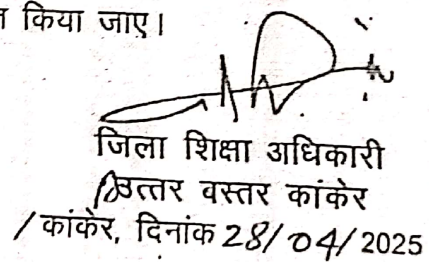 किया जाए।
जिला शिक्षा अधिकारी
उत्तर वस्तर कांकेर
/ कांकेर, दिनांक 28/04/2025